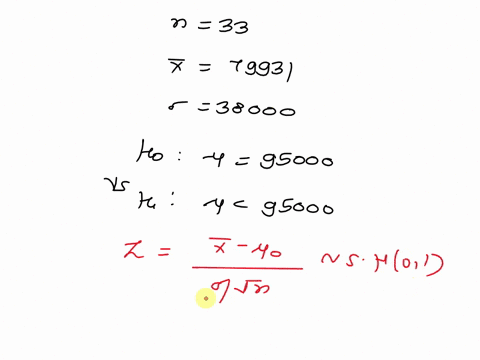 n = 33
x̄ = 79931
σ = 38000
H₀ : μ = 95000
vs
H₁ : μ < 95000
Z = (x̄ - μ₀) / (σ/√n) ~ S.N(0,1)